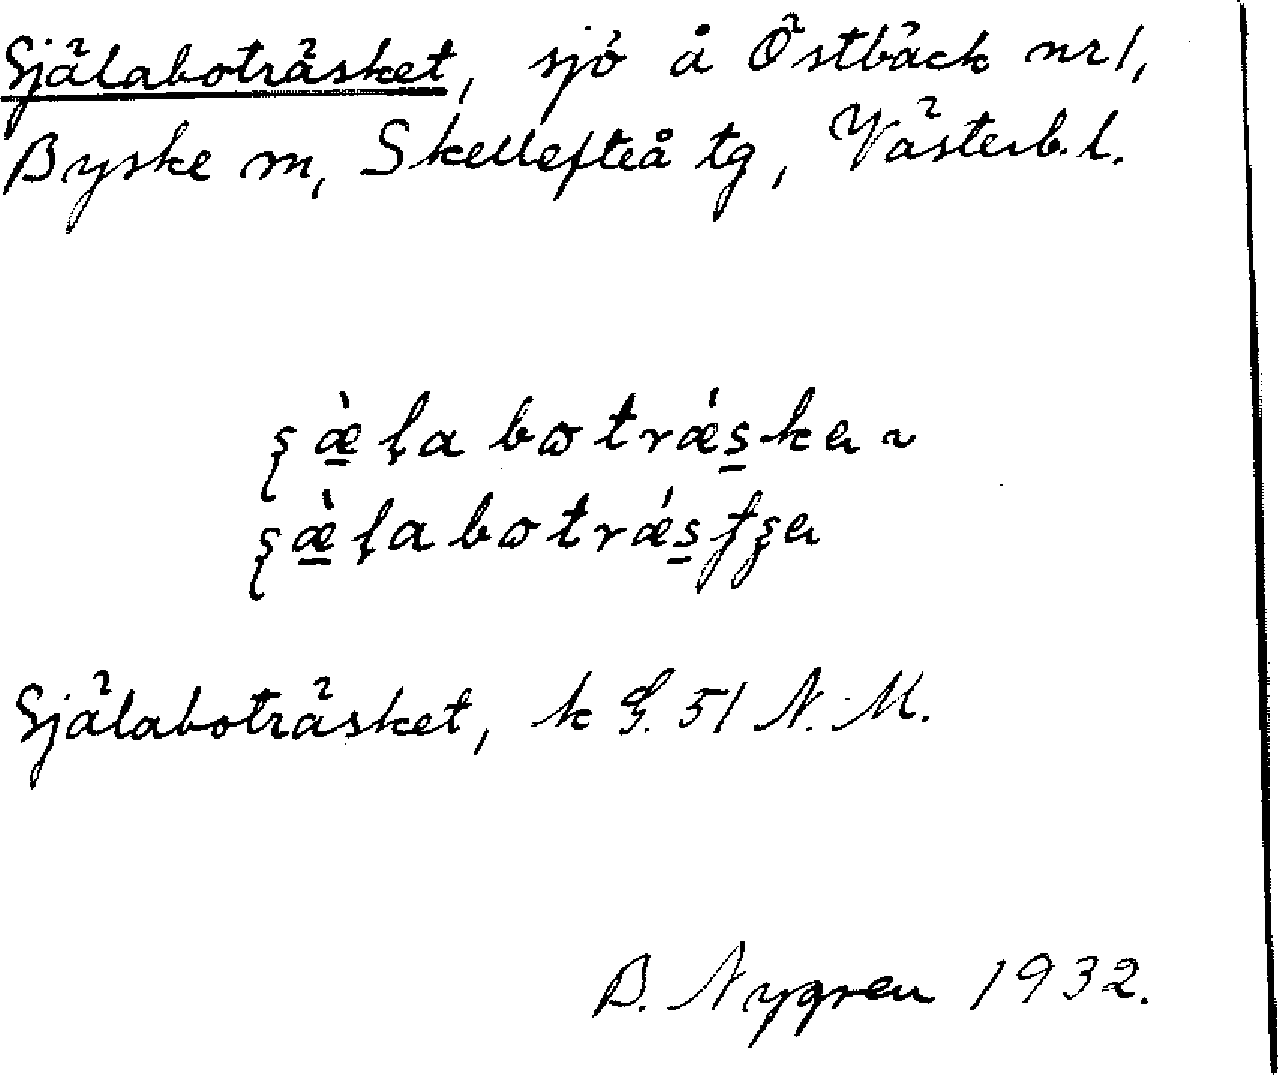 Själaboträsket, sjö å Östbäck nr 1,
Byske sn, Skellefteå tg, Västerb. l.
ȿæ̠̀ḷabωtrǽs̠ka ~
ȿæ̠̀ḷabωtrǽs̠ʃȿa
Själaboträsket, k G. 51 N. M.
B. Nygren 1932.